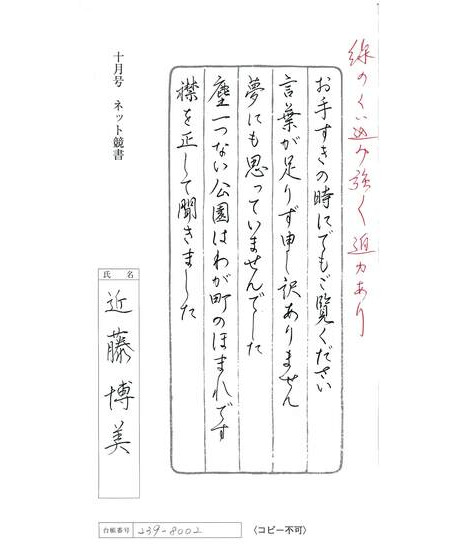 線のくい込み強く迫力あり
お手すきの時にでもご覧ください
言葉が足りず申し訳ありません
夢にも思っていませんでした
塵一つない公園はわが町のほまれです
襟を正して聞きました
十月号 ネット競書
氏名
近藤博美
台帳番号 239-8002
〈コピー不可〉